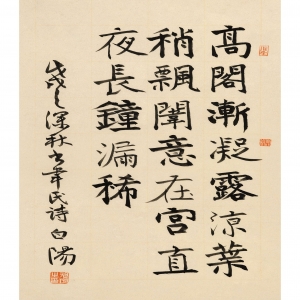 高閣漸凝露涼葉
稍飄闈意在宮直
夜長鐘漏稀
之深秋書韋氏詩白陽